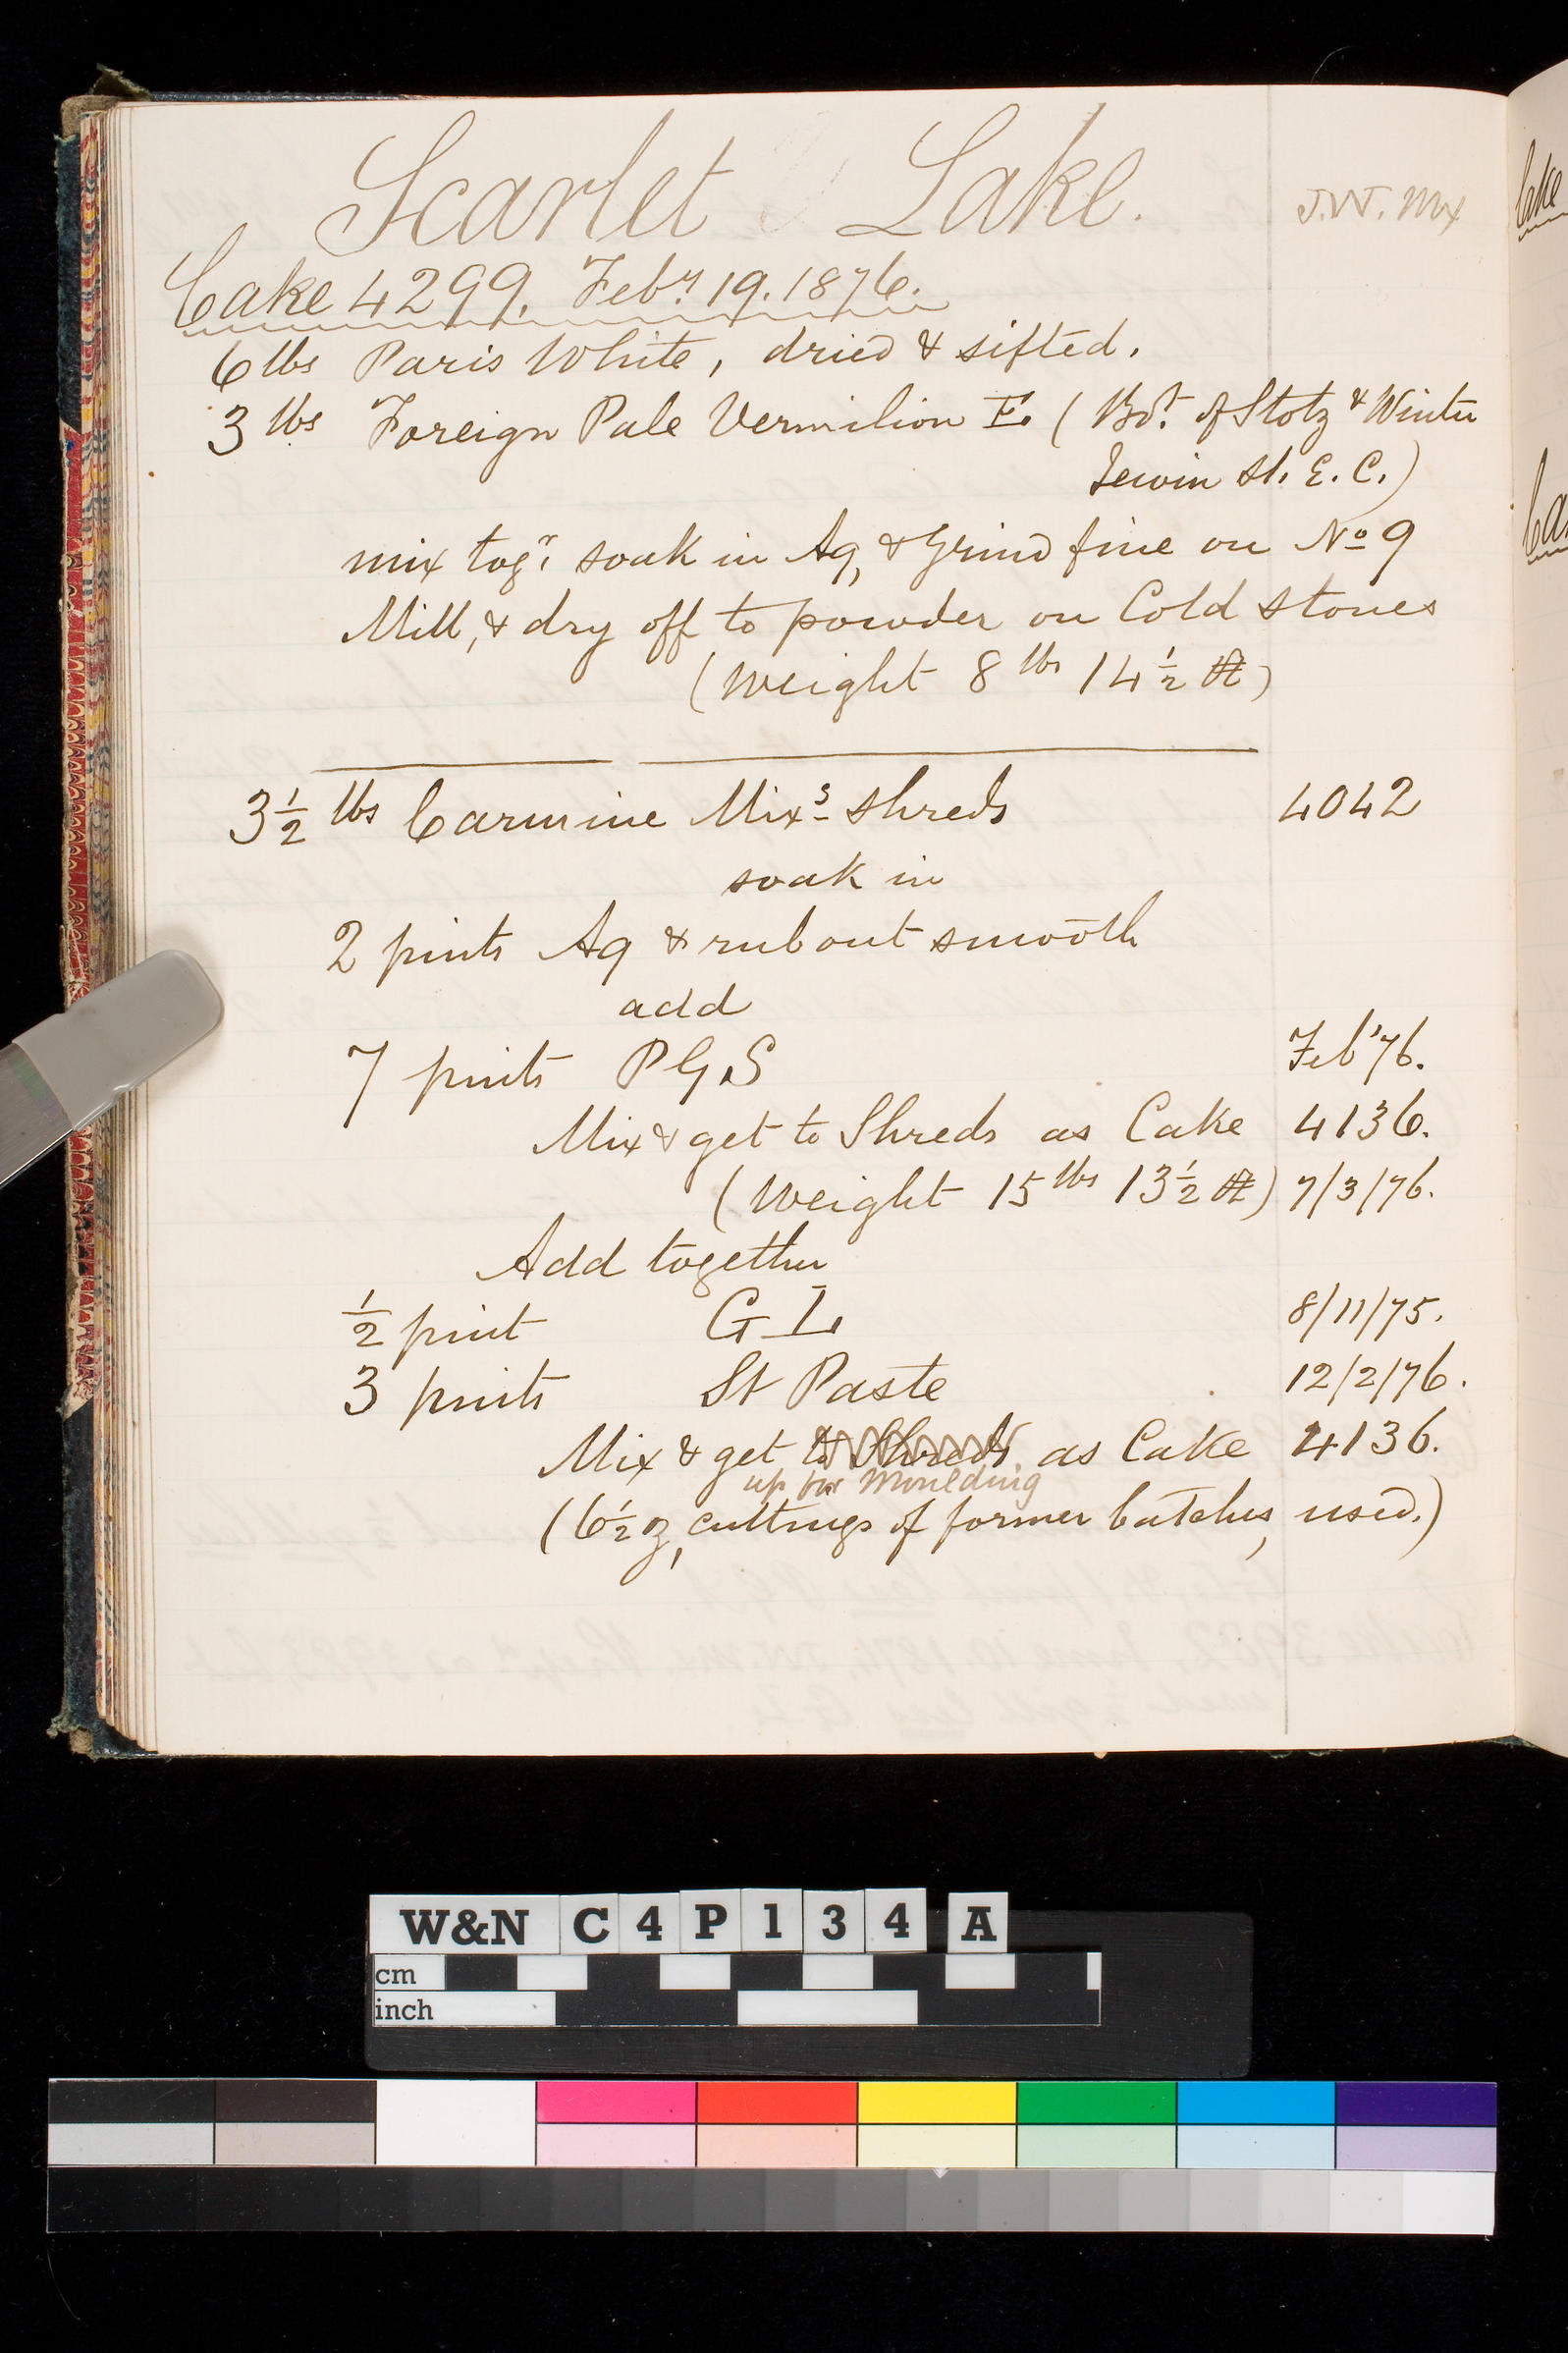 Scarlet Lake.
J.W. Mx
Cake 4299. Feby. 19. 1876.
6 lbs Paris White, dried & sifted.
3 lbs Foreign Pale Vermilion E. (Bot. of Stotz & Winter
Jewin St. E.C.)
mix togr. soak in Aq, & Grind fine on No 9
Mill, & dry off to powder on Cold Stones
(Weight 8 lbs 14 1/2)
3 1/2 lbs Carmine Mixs shreds 4042
soak in
2 pints Aq & rub out smooth
add
7 pints P G S Feb '76.
Mix & get to Shreds as Cake 4136.
(Weight 15 lbs 13 1/2) 7/3/76.
Add together
1/2 pint G L 8/11/75.
3 pints St Paste 12/2/76.
Mix & get to Shreds as Cake 4136.
up for Moulding
(6 1/2 oz, cuttings of former batches, used.)
Cake
Ca
W&N C4P134 A
cm
inch